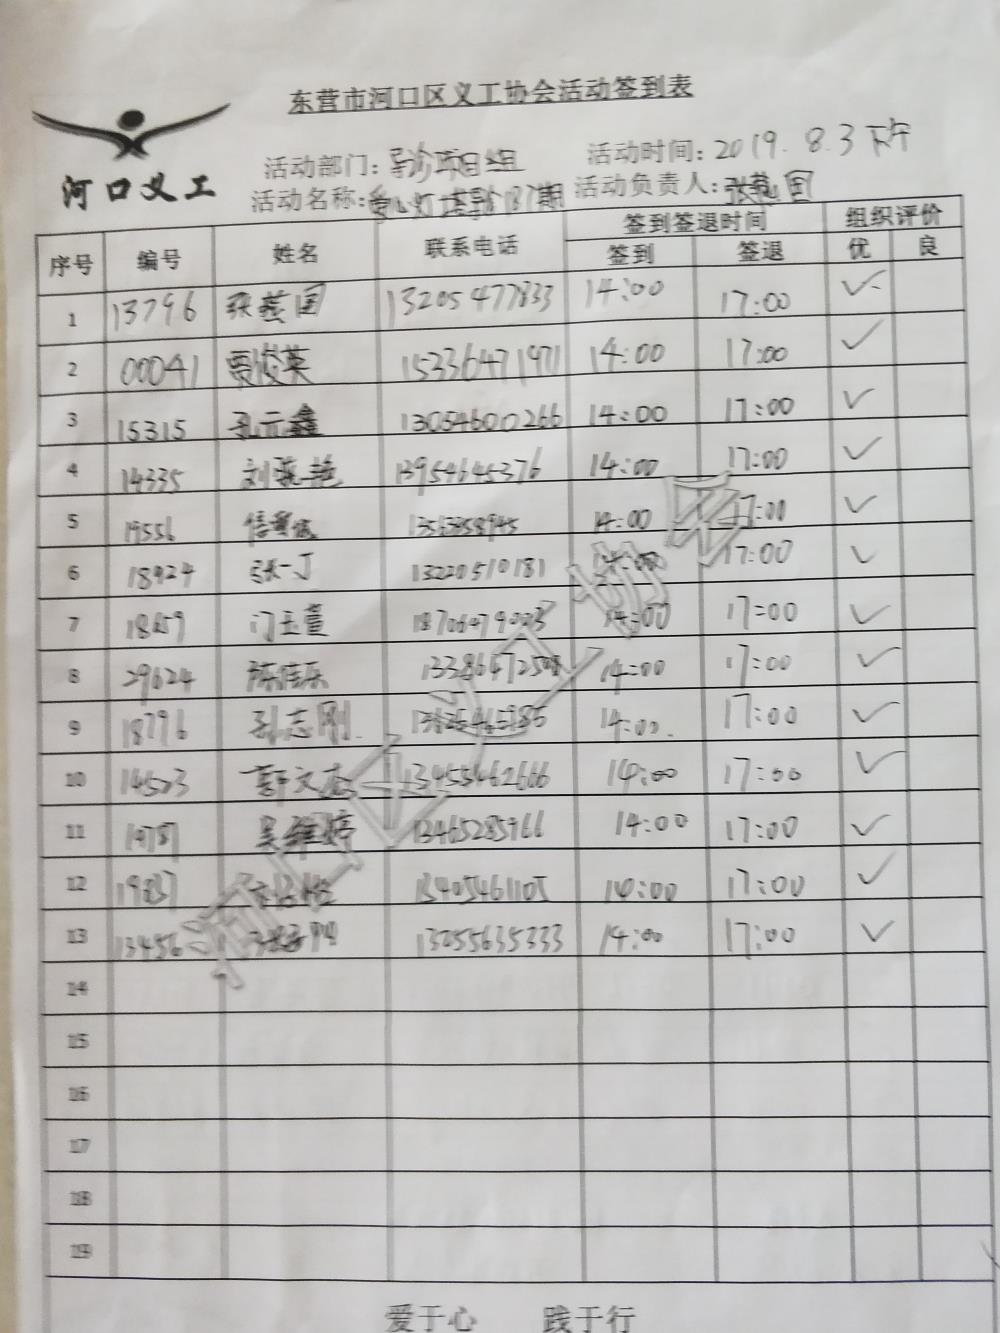 东营市河口区义工协会活动签到表
河口义工
活动部门：导诊项目组 活动时间：2019.8.3下午
活动名称：爱心灯塔导诊187期 活动负责人：张
序号 编号 姓名 联系电话 签到签退时间 组织评价
签到 签退 优 良
1 13796 张 国 13205477833 14:00 17:00 ✓
2 00041 贾俊英 15336471971 14:00 17:00 ✓
3 15315 孔元鑫 13054600266 14:00 17:00 ✓
4 14335 刘燕艳 13954645376 14:00 17:00 ✓
5 19556 14:00 17:00 ✓
6 18924 张一丁 13220510181 14:00 17:00 ✓
7 门玉萱 14:00 17:00 ✓
8 29624 陈佳乐 14:00 17:00 ✓
9 18796 孙志刚 14:00 17:00 ✓
10 文杰 13455462666 14:00 17:00 ✓
11 吴维婷 13465285966 14:00 17:00 ✓
12 13405461105 14:00 17:00 ✓
13 13456 13255635333 14:00 17:00 ✓
14
15
16
17
18
19
爱于心 践于行